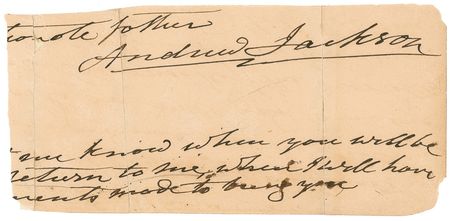 ionate father
Andrew Jackson
t me know when you will be
return to me, when I will have
ments made to bring you